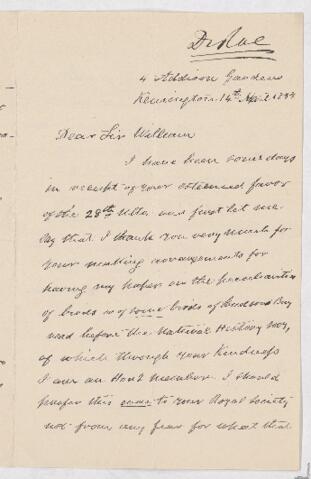 Dr Rae
4 Addison Gardens
Kensington 14th April
Dear Sir William
I have been some days
in receipt of your esteemed favor
of the 28th Ulto. and first let me
say that I thank you very much for
your making arrangements for
having my paper on the peculiarities
of birds or of some birds of Hudsons Bay
read before the Natural History Socy,
of which through your kindness
I am an Hony. member. I should
prefer this even to your Royal Society
not from any fear for what that